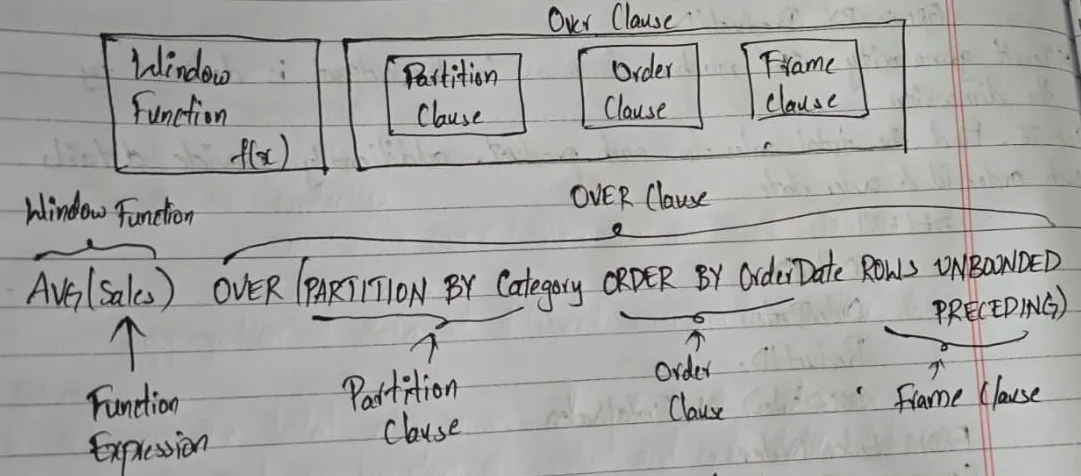 Over Clause
Window
Function
f(x)
Partition
Clause
Order
Clause
Frame
Clause
Window Function
OVER Clause
AVG(Sales) OVER (PARTITION BY Category ORDER BY OrderDate ROWS UNBOUNDED
PRECEDING)
Function
Expression
Partition
Clause
Order
Clause
Frame Clause